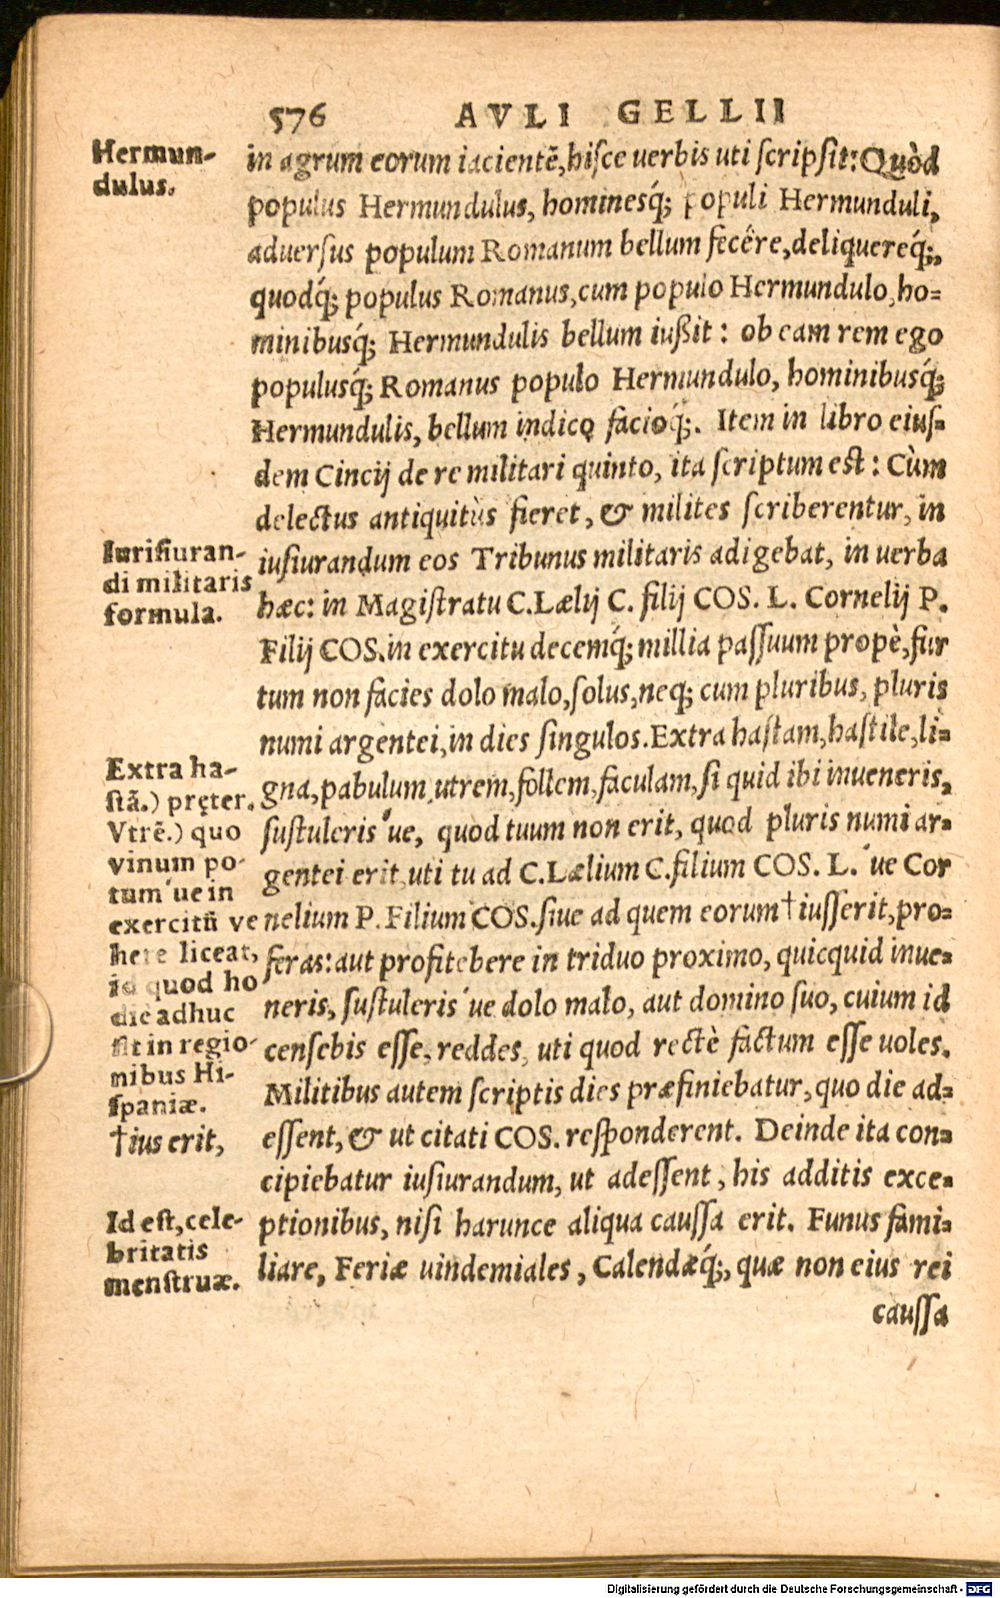 576 AVLI GELLII
Hermun-
dulus.
in agrum eorum iacientẽ, hisce uerbis uti scripsit: Quòd
populus Hermundulus, hominesq́; populi Hermunduli,
aduersus populum Romanum bellum fecêre, deliquereq́;,
quodq́; populus Romanus, cum populo Hermundulo, ho-
minibusq́; Hermundulis bellum iußit: ob eam rem ego
populusq́; Romanus populo Hermundulo, hominibusq́;
Hermundulis, bellum indico facioq́;. Item in libro eius-
dem Cincij de re militari quinto, ita scriptum est: Cùm
delectus antiquitùs fieret, & milites scriberentur, in
Iurisiuran-
di militaris
formula.
iusiurandum eos Tribunus militaris adigebat, in uerba
hæc: in Magistratu C. Lælij C. filij COS. L. Cornelij P.
Filij COS. in exercitu decemq́; millia passuum propè, fur
tum non facies dolo malo, solus, neq; cum pluribus, pluris
numi argentei, in dies singulos. Extra hastam, hastile, li-
Extra ha-
stã.) pręter.
Vtrẽ.) quo
vinum po-
tum ́ue in
exercitũ ve
here liceat,
id quod ho
die adhuc
fit in regio-
nibus Hi-
spaniæ.
†ius erit,
gna, pabulum, utrem, follem, faculam, si quid ibi inueneris,
sustuleris ́ue, quod tuum non erit, quod pluris numi ar-
gentei erit, uti tu ad C. Lælium C. filium COS. L. ́ue Cor
nelium P. Filium COS. siue ad quem eorum † iusserit, pro-
feras: aut profitebere in triduo proximo, quicquid inue-
neris, sustuleris ́ue dolo malo, aut domino suo, cuium id
censebis esse, reddes, uti quod rectè factum esse uoles.
Militibus autem scriptis dies præfiniebatur, quo die ad-
essent, & ut citati COS. responderent. Deinde ita con-
cipiebatur iusiurandum, ut adessent, his additis exce-
Id est, cele-
britatis
menstruæ.
ptionibus, nisi harunce aliqua caussa erit. Funus fami-
liare, Feriæ uindemiales, Calendæq́;, quæ non eius rei
caussa
Digitalisierung gefördert durch die Deutsche Forschungsgemeinschaft - DFG